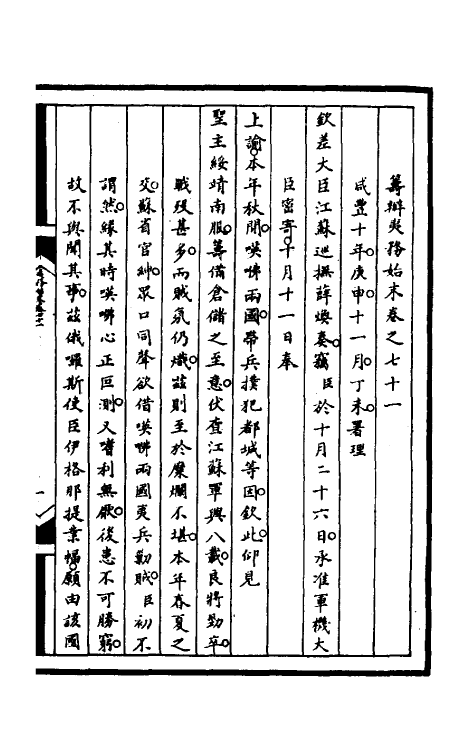 籌辦夷務始末卷之七十一
咸豐十年庚申十一月丁未署理
欽差大臣江蘇巡撫薛煥奏竊臣於十月二十六日承准軍機大
臣密寄十月十一日奉
上諭本年秋間𠸄咈兩國帶兵撲犯都城等因欽此仰見
聖主綏靖南服籌備倉儲之至意伏查江蘇軍興八載良將勁卒
戰歿甚多而賊氛仍熾茲則至於糜爛不堪本年春夏之
交蘇省官紳眾口同聲欲借𠸄咈兩國夷兵勦賊臣初不
謂然緣其時𠸄咈心正叵測又嗜利無厭後患不可勝窮
故不與聞其事茲俄囉斯使臣伊格那提業幅願由該國